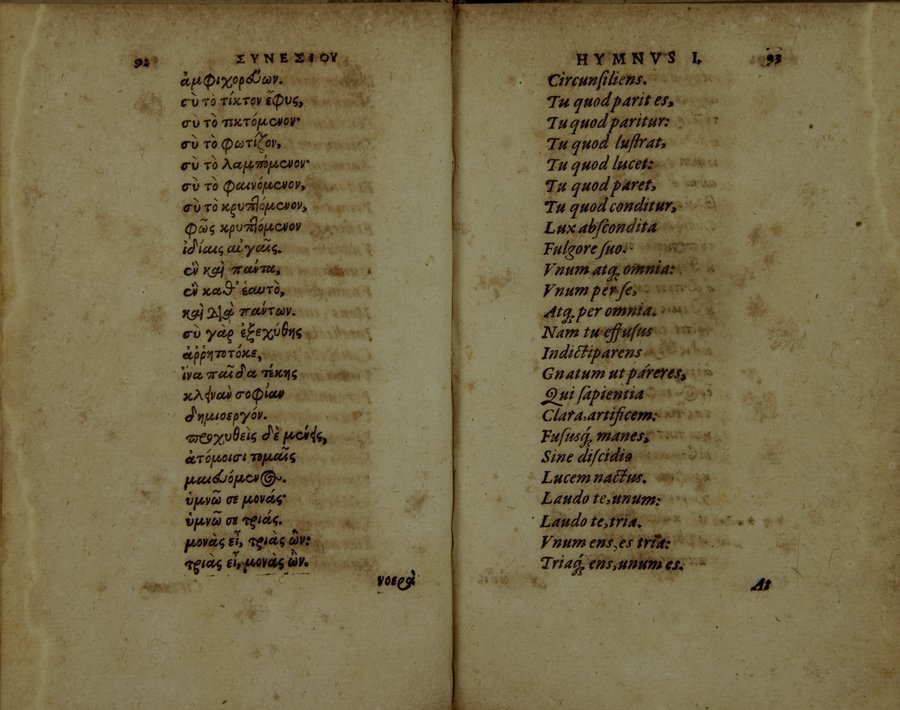 92 ΣΥΝΕΣΙΟΥ
ἀμφιχορεύων.
σὺ τὸ τίκτον ἔφυς,
σὺ τὸ τικτόμενον·
σὺ τὸ φωτίζον,
σὺ τὸ λαμπόμενον·
σὺ τὸ φαινόμενον,
σὺ τὸ κρυπτόμενον,
φῶς κρυπτόμενον
ἰδίαις αὐγαῖς.
ἓν καὶ πάντα,
ἓν καθ' ἑαυτὸ,
καὶ διὰ πάντων.
σὺ γὰρ ἐξεχύθης
ἀῤῥητοτόκε,
ἵνα παῖδα τέκης
κλεινὰν σοφίαν
δημιοεργόν.
προχυθεὶς δὲ μένεις,
ἀτόμοισι τομαῖς
μαιευόμενος.
ὑμνῶ σε μονάς·
ὑμνῶ σε τριάς.
μονὰς εἶ, τριὰς ὤν:
τριὰς εἶ, μονὰς ὤν.
νοερὰ
HYMNVS I. 93
Circunſiliens.
Tu quod parit es,
Tu quod paritur:
Tu quod luſtrat,
Tu quod lucet:
Tu quod paret,
Tu quod conditur,
Lux abſcondita
Fulgore ſuo.
Vnum atq; omnia:
Vnum per ſe,
Atq; per omnia.
Nam tu effuſus
Indictiparens
Gnatum ut páreres,
Qui ſapientia
Clara, artificem:
Fuſusq́; manes,
Sine diſcidio
Lucem nactus.
Laudo te, unum:
Laudo te, tria.
Vnum ens, es tria:
Triaq́; ens, unum es.
At